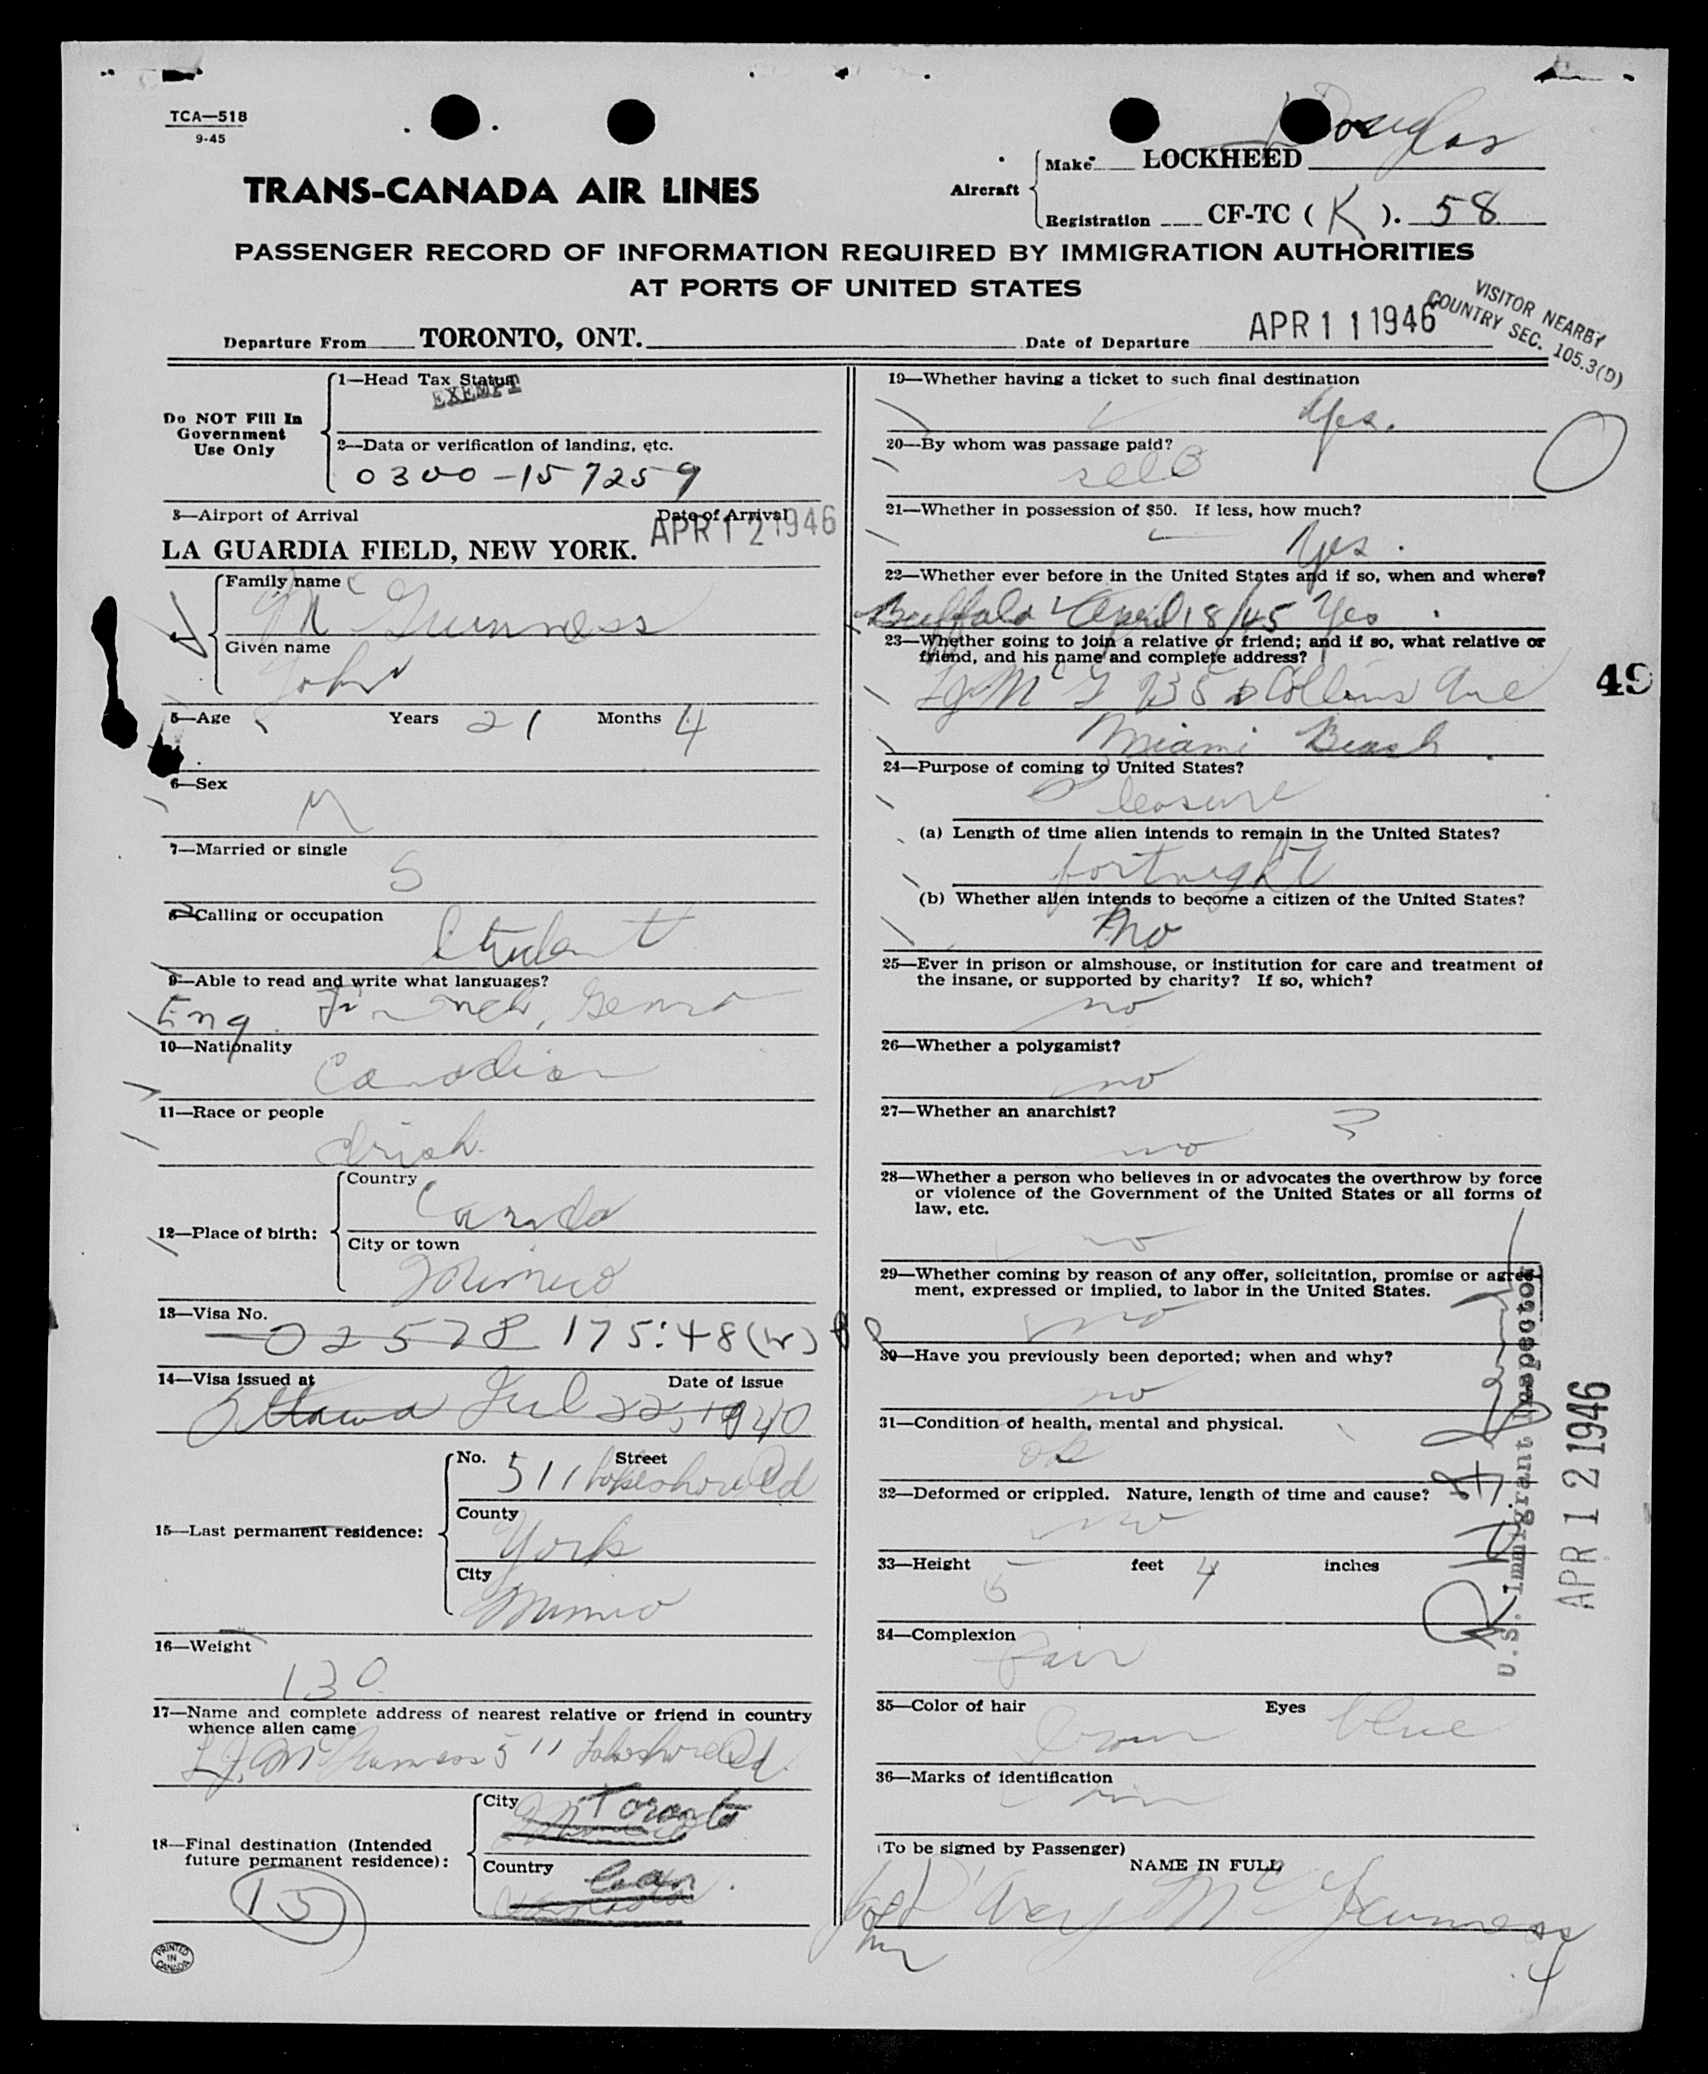 TCA—518
9-45
Douglas
TRANS-CANADA AIR LINES
Aircraft
Make LOCKHEED
Registration CF-TC ( K ). 58
PASSENGER RECORD OF INFORMATION REQUIRED BY IMMIGRATION AUTHORITIES
AT PORTS OF UNITED STATES
VISITOR NEARBY
COUNTRY SEC. 105.3(D)
Departure From TORONTO, ONT. Date of Departure APR 11 1946
Do NOT Fill In
Government
Use Only
1—Head Tax Status
EXEMPT
2—Data or verification of landing, etc.
0300-157259
3—Airport of Arrival Date of Arrival
LA GUARDIA FIELD, NEW YORK. APR 12 1946
4
Family name
McGuinness
Given name
John
5—Age Years 21 Months 4
6—Sex
M
7—Married or single
S
8—Calling or occupation
Student
9—Able to read and write what languages?
Eng. French, German
10—Nationality
Canadian
11—Race or people
Irish
12—Place of birth:
Country
Canada
City or town
Mimico
13—Visa No.
02578 175:48(w)
14—Visa issued at Date of issue
Ottawa Jul 22, 1940
15—Last permanent residence:
No. Street
511 Lakeshore Rd
County
York
City
Mimico
16—Weight
130
17—Name and complete address of nearest relative or friend in country
whence alien came
L.J. McGuinness 511 Lakeshore Rd.
18—Final destination (Intended
future permanent residence):
City
Toronto
Mimico
Country
Can.
Canada
15
PRINTED
IN
CANADA
19—Whether having a ticket to such final destination
Yes.
20—By whom was passage paid?
self
21—Whether in possession of $50. If less, how much?
Yes.
22—Whether ever before in the United States and if so, when and where?
Buffalo April 18/45 Yes
23—Whether going to join a relative or friend; and if so, what relative or
friend, and his name and complete address?
LJ McG Collins Ave
Miami Beach
49
24—Purpose of coming to United States?
Pleasure
(a) Length of time alien intends to remain in the United States?
fortnight
(b) Whether alien intends to become a citizen of the United States?
no
25—Ever in prison or almshouse, or institution for care and treatment of
the insane, or supported by charity? If so, which?
no
26—Whether a polygamist?
no
27—Whether an anarchist?
no
28—Whether a person who believes in or advocates the overthrow by force
or violence of the Government of the United States or all forms of
law, etc.
no
29—Whether coming by reason of any offer, solicitation, promise or agree-
ment, expressed or implied, to labor in the United States.
no
30—Have you previously been deported; when and why?
no
31—Condition of health, mental and physical.
ok
32—Deformed or crippled. Nature, length of time and cause?
no
33—Height 5 feet 4 inches
34—Complexion
fair
35—Color of hair Eyes
brown blue
36—Marks of identification
U.S. Immigrant Inspector
APR 12 1946
(To be signed by Passenger)
NAME IN FULL
D'Arcy McGuinness
4